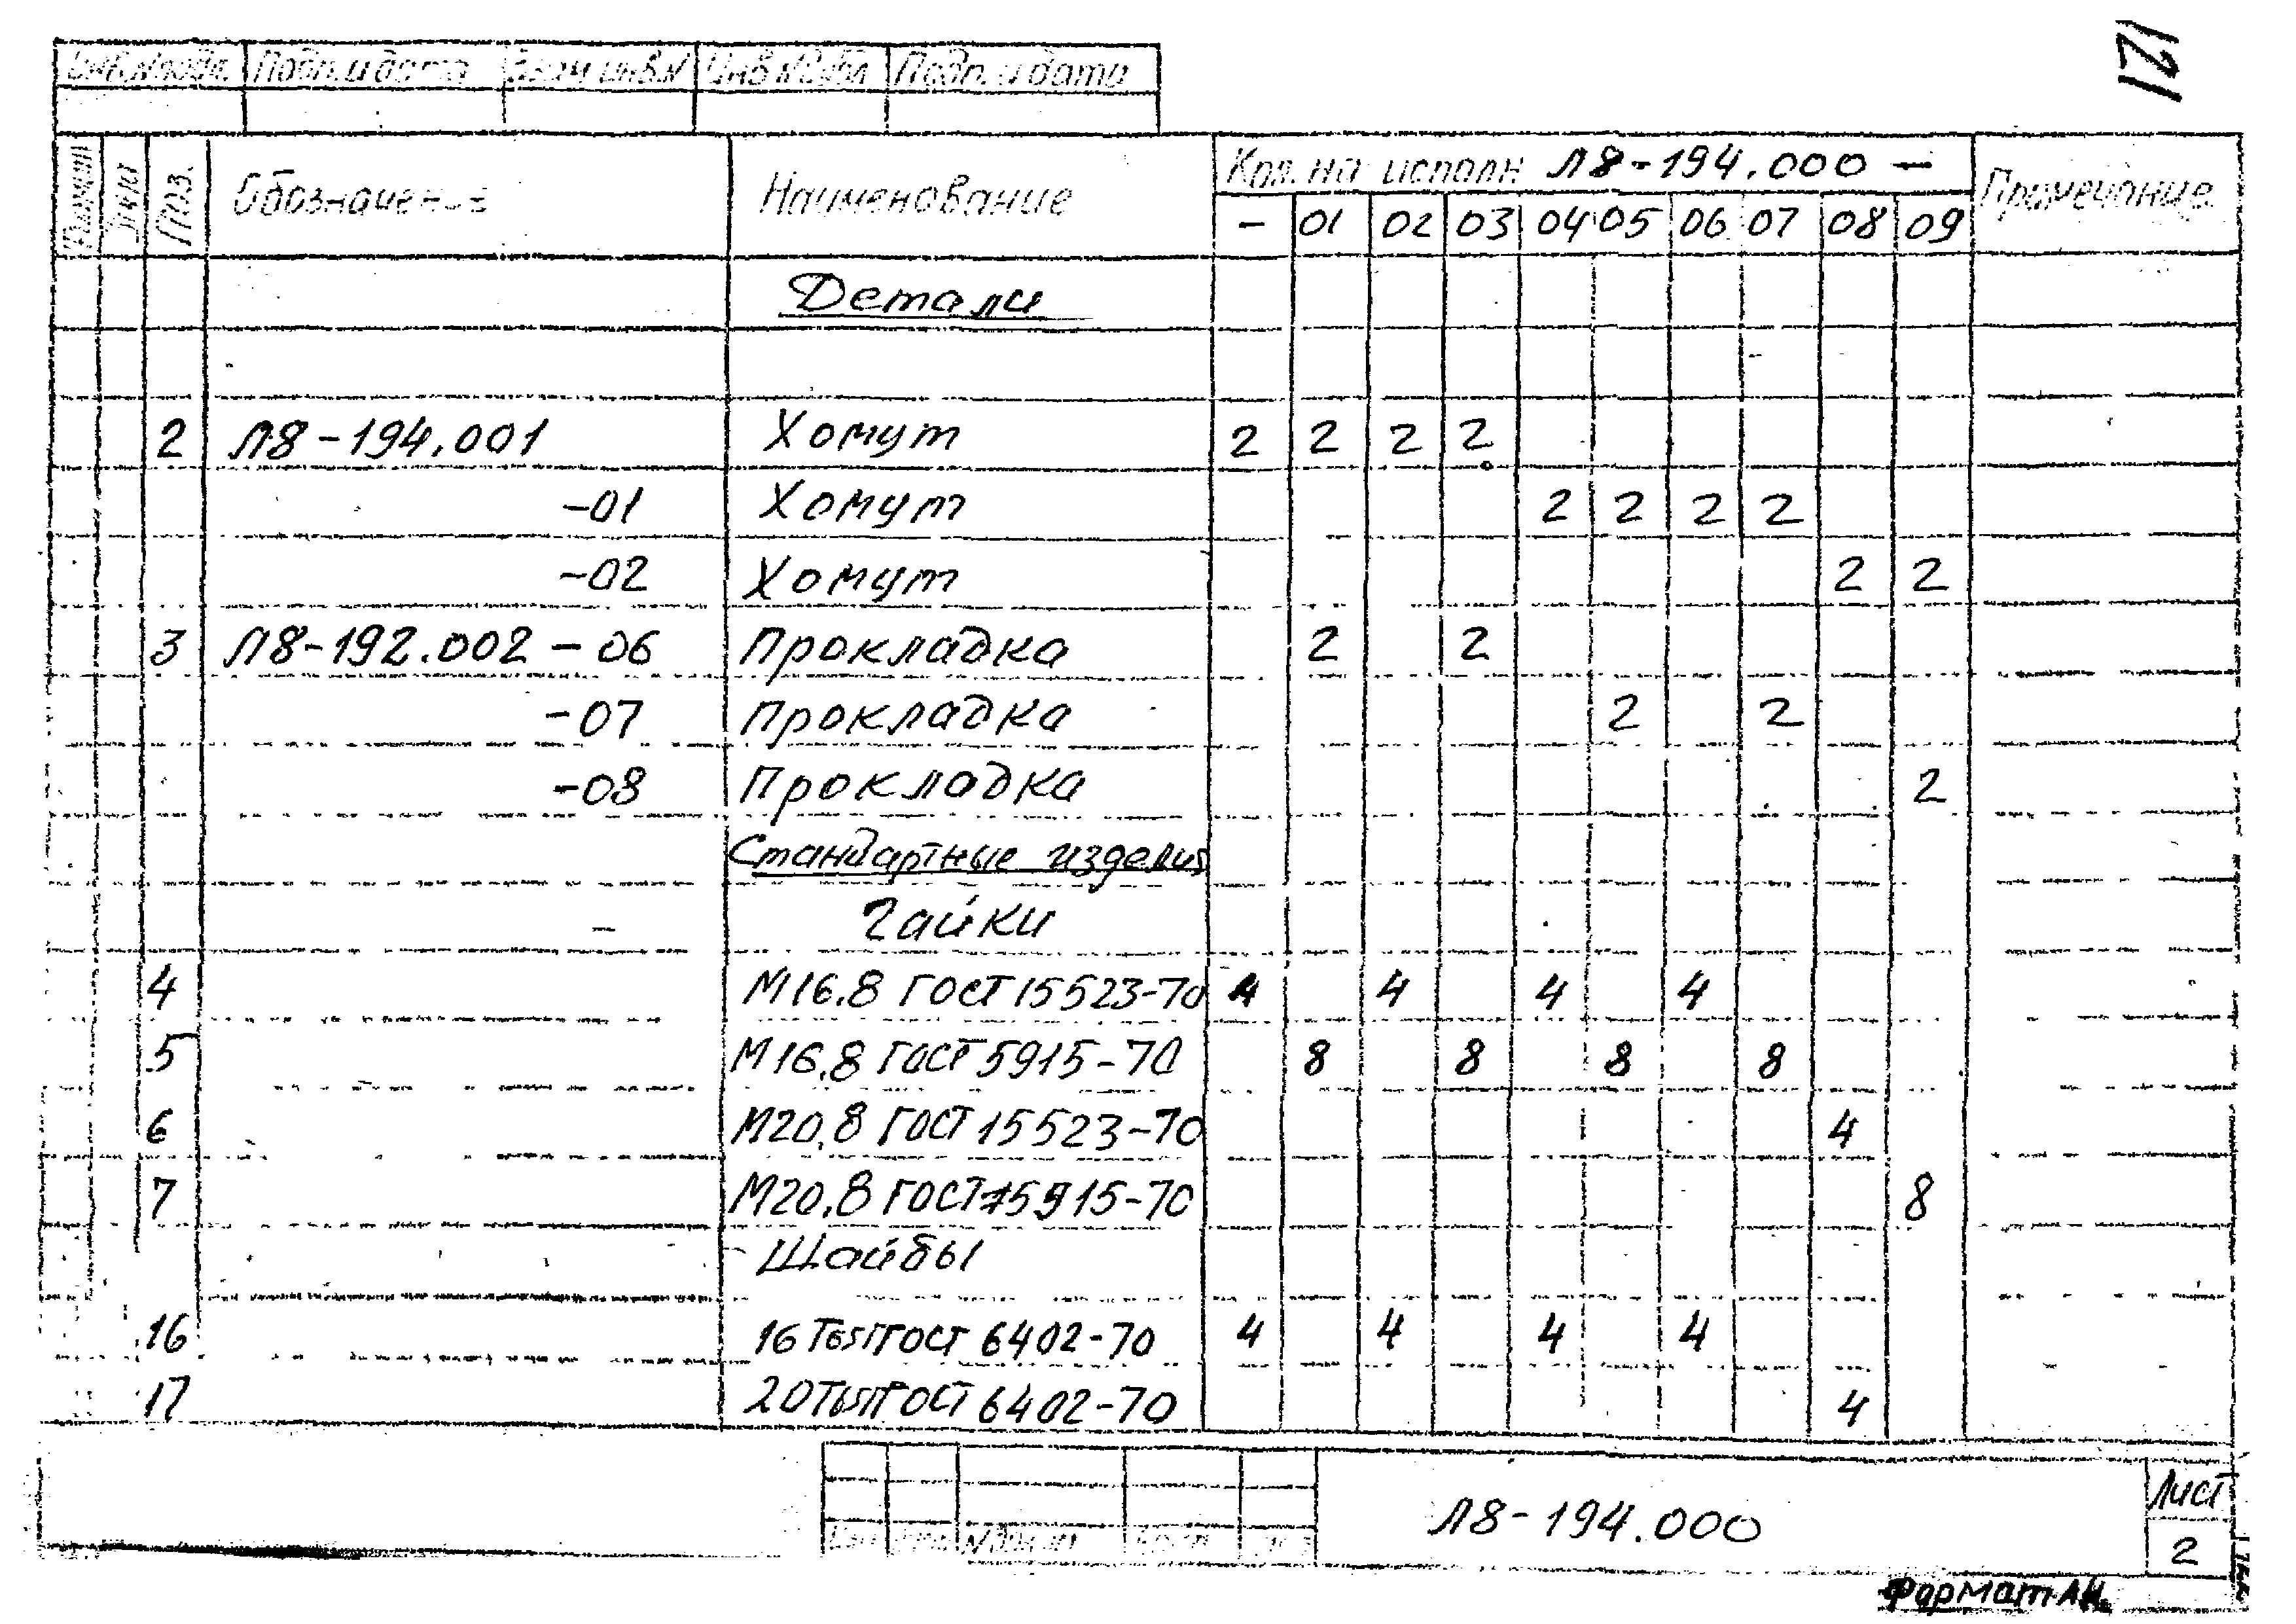 121
Инв.№подл. Подп. и дата Взам инв.№ Инв №дубл Подп. и дата
Поз. Обозначение Наименование Кол. на исполн Л8-194.000 — Примечание
— 01 02 03 04 05 06 07 08 09
Детали
2 Л8-194.001 Хомут 2 2 2 2
-01 Хомут 2 2 2 2
-02 Хомут 2 2
3 Л8-192.002-06 Прокладка 2 2
-07 Прокладка 2 2
-08 Прокладка 2
Стандартные изделия
Гайки
4 М16.8 ГОСТ 15523-70 4 4 4 4
5 М16,8 ГОСТ 5915-70 8 8 8 8
6 М20,8 ГОСТ 15523-70 4
7 М20,8 ГОСТ 5915-70 8
Шайбы
16 16 Т65Г ГОСТ 6402-70 4 4 4 4
17 20 Т65Г ГОСТ 6402-70 4
Л8-194.000
Лист
2
Формат А4